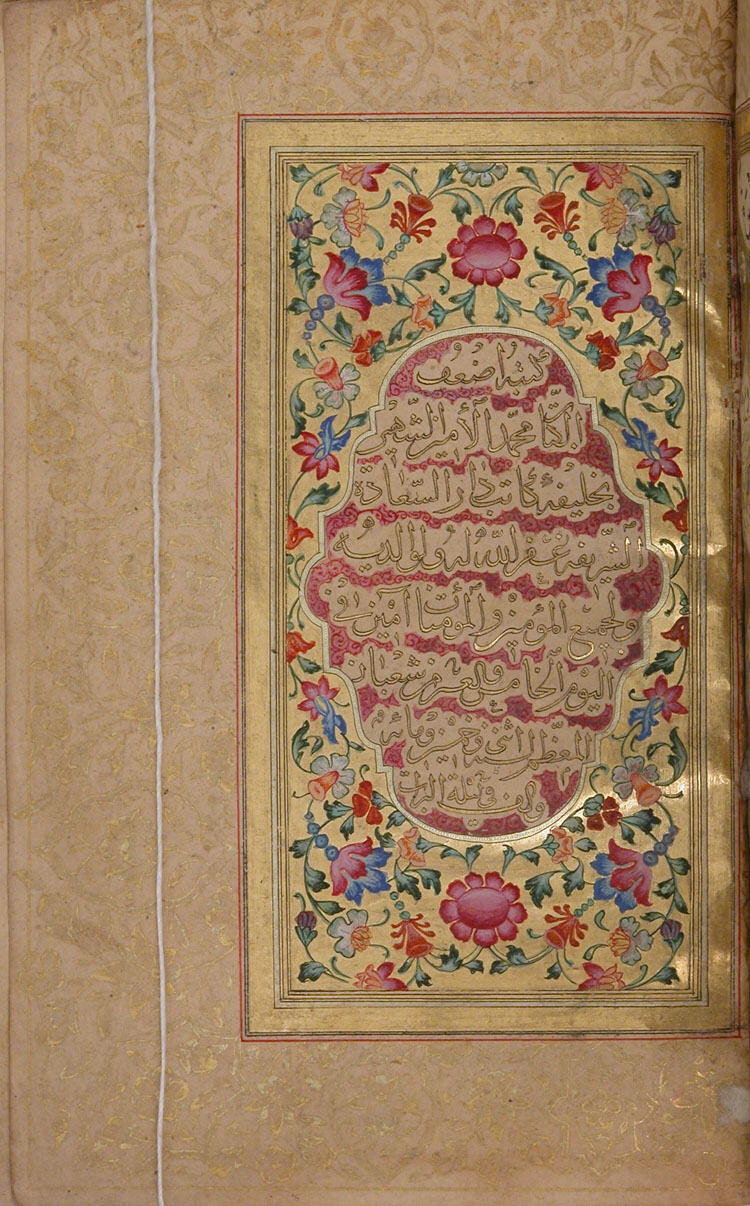 كتبه اضعف
الكتاب محمد الأمين الشهير
بخليفة كاتب دار السعادة
الشريفة غفر الله له ولوالديه
ولجميع المؤمنين والمؤمنات آمين في
اليوم الخامس والعشرين من شعبان
المعظم لسنة اثنى وخمسين ومائة
والف في